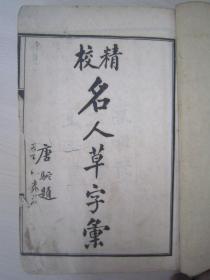 精校
名人草字彙
唐駝題